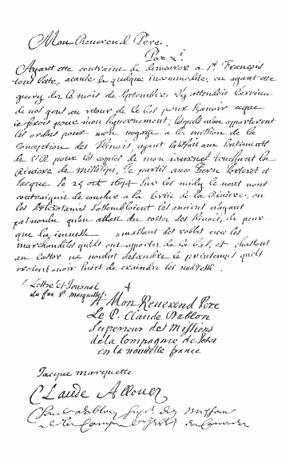 Mon Reuerend Pere.
Pax Xi.
Ayant esté contraint de demeurer a St François
tout l'esté, acause de quelque incommodité, en ayant esté
guery dez le mois de septembre, j'y attendois l'arriuée
de nos gens au retour de la bas pour sçauoir ce que
je ferois pour mon hyuernement; lesquels m'apporterent
les ordres pour mon voyage a la mission de la
Conception des Ilinois, ayant satisfait aux sentiments
de V.R. pour les copies de mon iournal touchant la
Riuiere de
le 25 oct. 1674 sur les midy le vent nous
contraignit de coucher a la sortie de la Riuiere, ou
les s'assembloient, les anciens n'ayant
pas voulu qu'on allast du costé des Ilinois, de peur
que la ieunesse amassant des robbes auec les
marchandises qu'ils ont apporter de la bas, et chassant
au castor ne voulut descendre le printemps qu'ils
suiet de craindre les
Lettre et Journal
du feu P. marquette
A Mon Reuerend Pere
Le P. Claude Dablon
Superieur des Missions
de la Compagnie de Jesus
en la nouuelle france
Jacque marquette
Claude Allouez